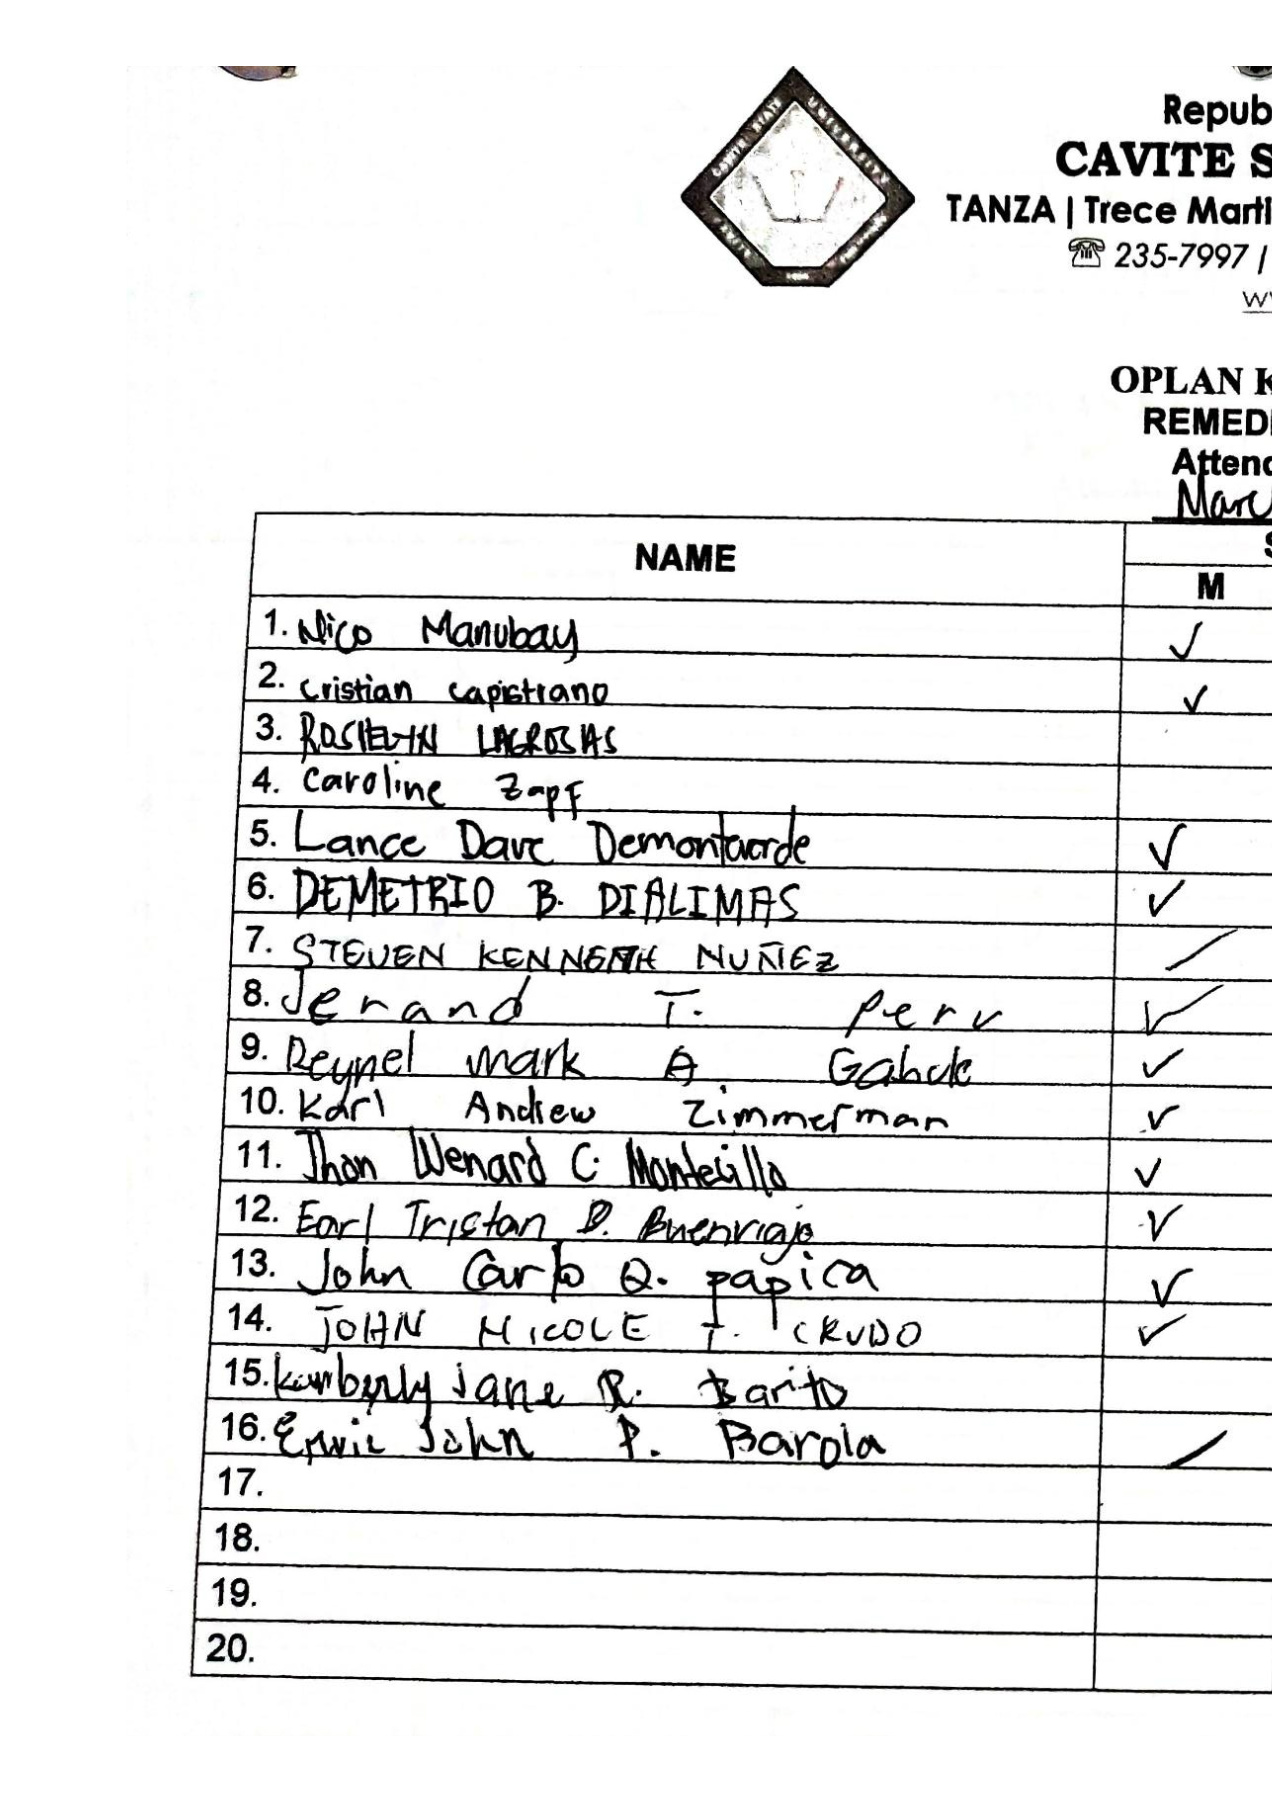 Repub
CAVITE S
TANZA | Trece Marti
☎ 235-7997 /
OPLAN K
REMEDI
Attend
Marc
NAME
M
1. Nico Manubay ✓
2. cristian capistrano ✓
3. ROSIELYN LAGROSAS
4. Caroline Zapf
5. Lance Dave Demontaverde ✓
6. DEMETRIO B. DIALIMAS ✓
7. STEVEN KENNETH NUÑEZ /
8. Jerand T. Peru ✓
9. Reynel mark A Gabuk ✓
10. Karl Andrew Zimmerman ✓
11. Jhon Wenard C. Montecillo ✓
12. Earl Tristan D. ✓
13. John Carlo Q. papica ✓
14. JOHN NICOLE T. CRUDO ✓
15. Kimberly Jane R. Barito
16. John P. Barola /
17.
18.
19.
20.